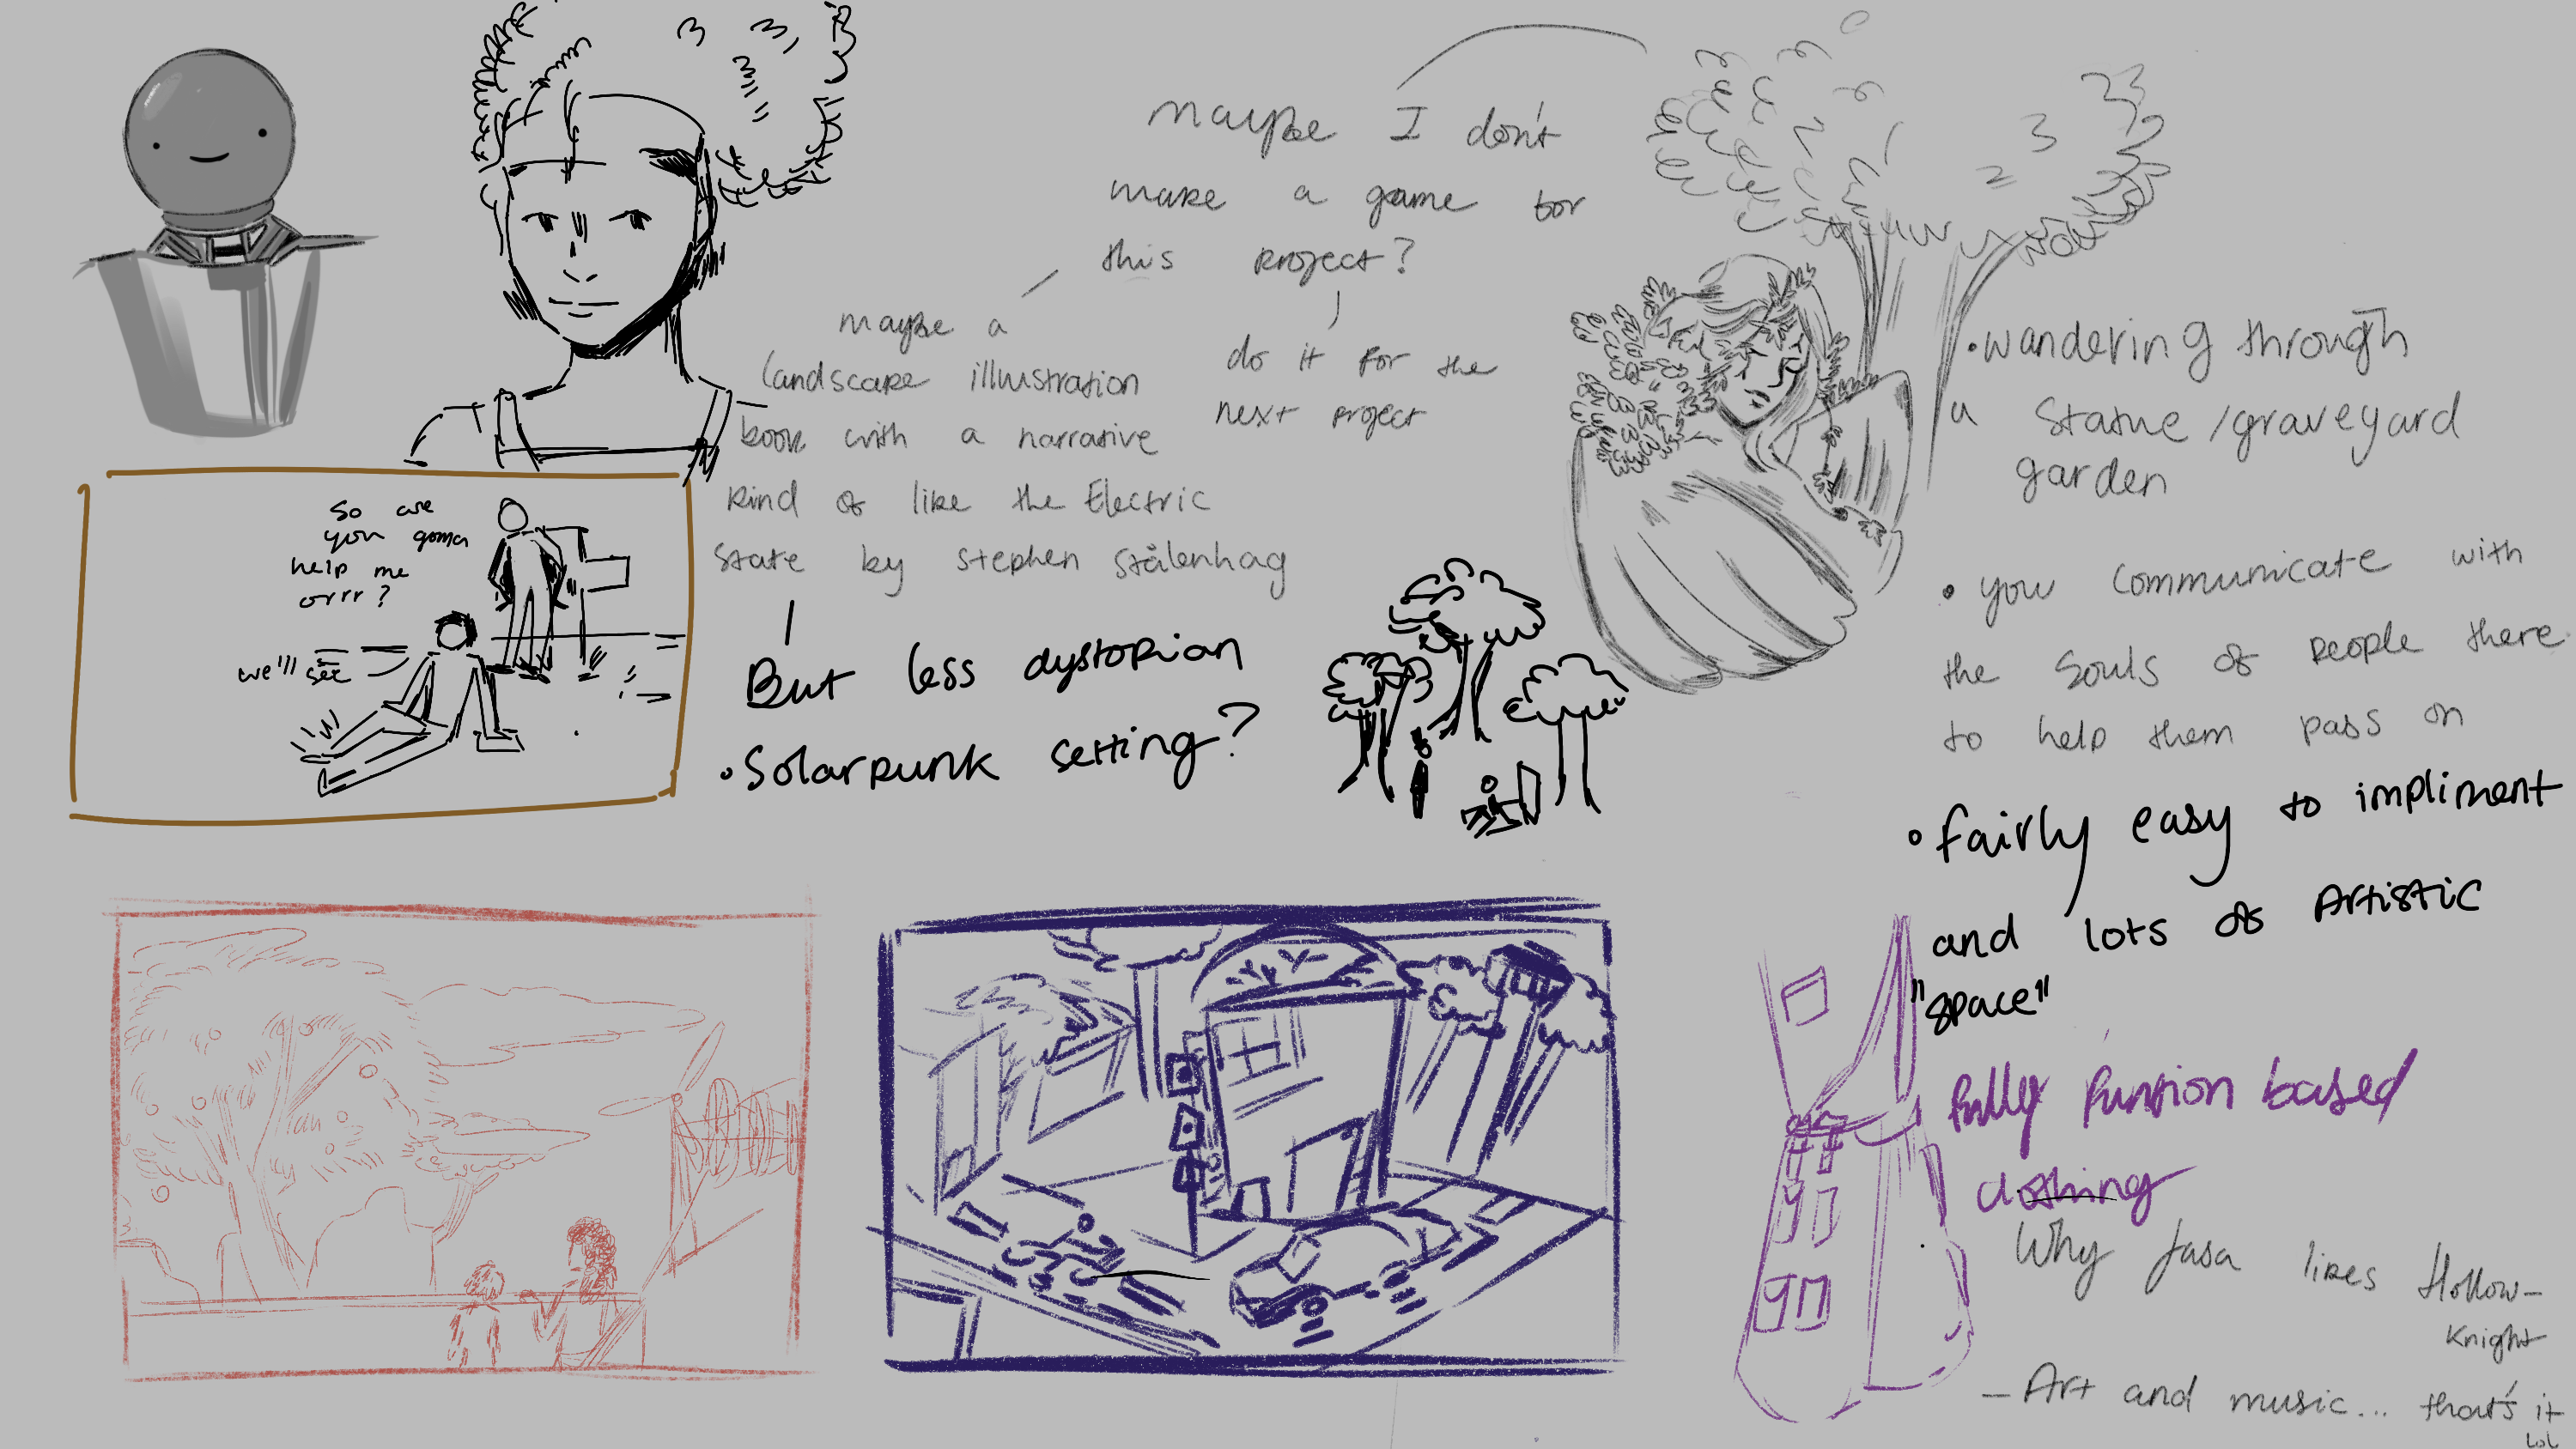 maybe I don't
make a game for
this project?
maybe a
landscape illustration
book with a narrative
kind of like the Electric
state by stephen stålenhag
But less dystopian
• Solarpunk setting?
do it for the
next project
So are
you gonna
help me
orrr?
we'll see
• wandering through
a statue/graveyard
garden
• you communicate with
the souls of people there
to help them pass on
• fairly easy to impliment
and lots of Artistic
"space"
fully funtion based
clothing
Why Jasa likes Hollow-
Knight
- Art and music... that's it
lol